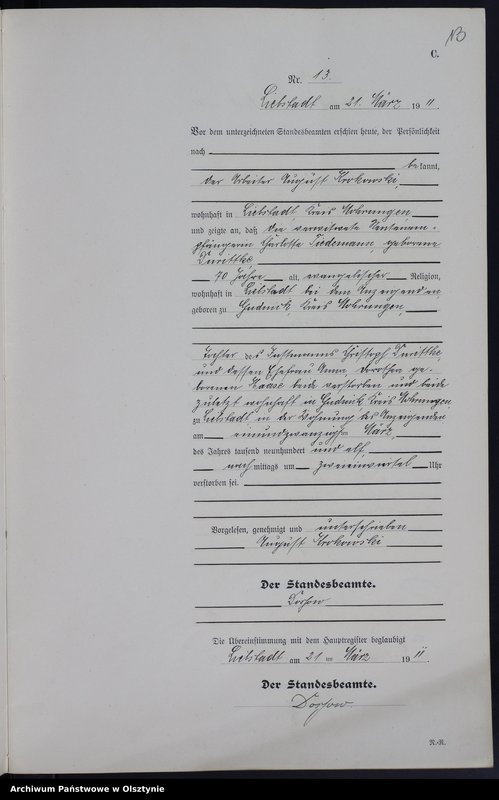 C.
Nr. 13.
Liebstadt am 21. März 1911.
Vor dem unterzeichneten Standesbeamten erschien heute, der Persönlichkeit
nach
bekannt,
der Arbeiter August Krokowski,
wohnhaft in Liebstadt Kreis Mohrungen
und zeigte an, daß die verwitwete Rentenem-
pfängerin Charlotte Tiedemann, geborene
70 Jahre alt, evangelischer Religion,
wohnhaft in Liebstadt bei dem Anzeigenden,
geboren zu Gudnick, Kreis Mohrungen,
Tochter des Instmanns Christoph
und dessen Ehefrau Anna, Dorothea ge-
borenen Haase beide verstorben und beide
zuletzt wohnhaft in Gudnick, Kreis Mohrungen,
zu Liebstadt, in der Wohnung des Anzeigenden
am einundzwanzigsten März,
des Jahres tausend neunhundert und elf,
nachmittags um zweieinviertel Uhr
verstorben sei.
Vorgelesen, genehmigt und unterschrieben
August Krokowski
Der Standesbeamte.
Die Übereinstimmung mit dem Hauptregister beglaubigt
Liebstadt am 21 ten März 1911.
Der Standesbeamte.
N.-R.
Archiwum Państwowe w Olsztynie